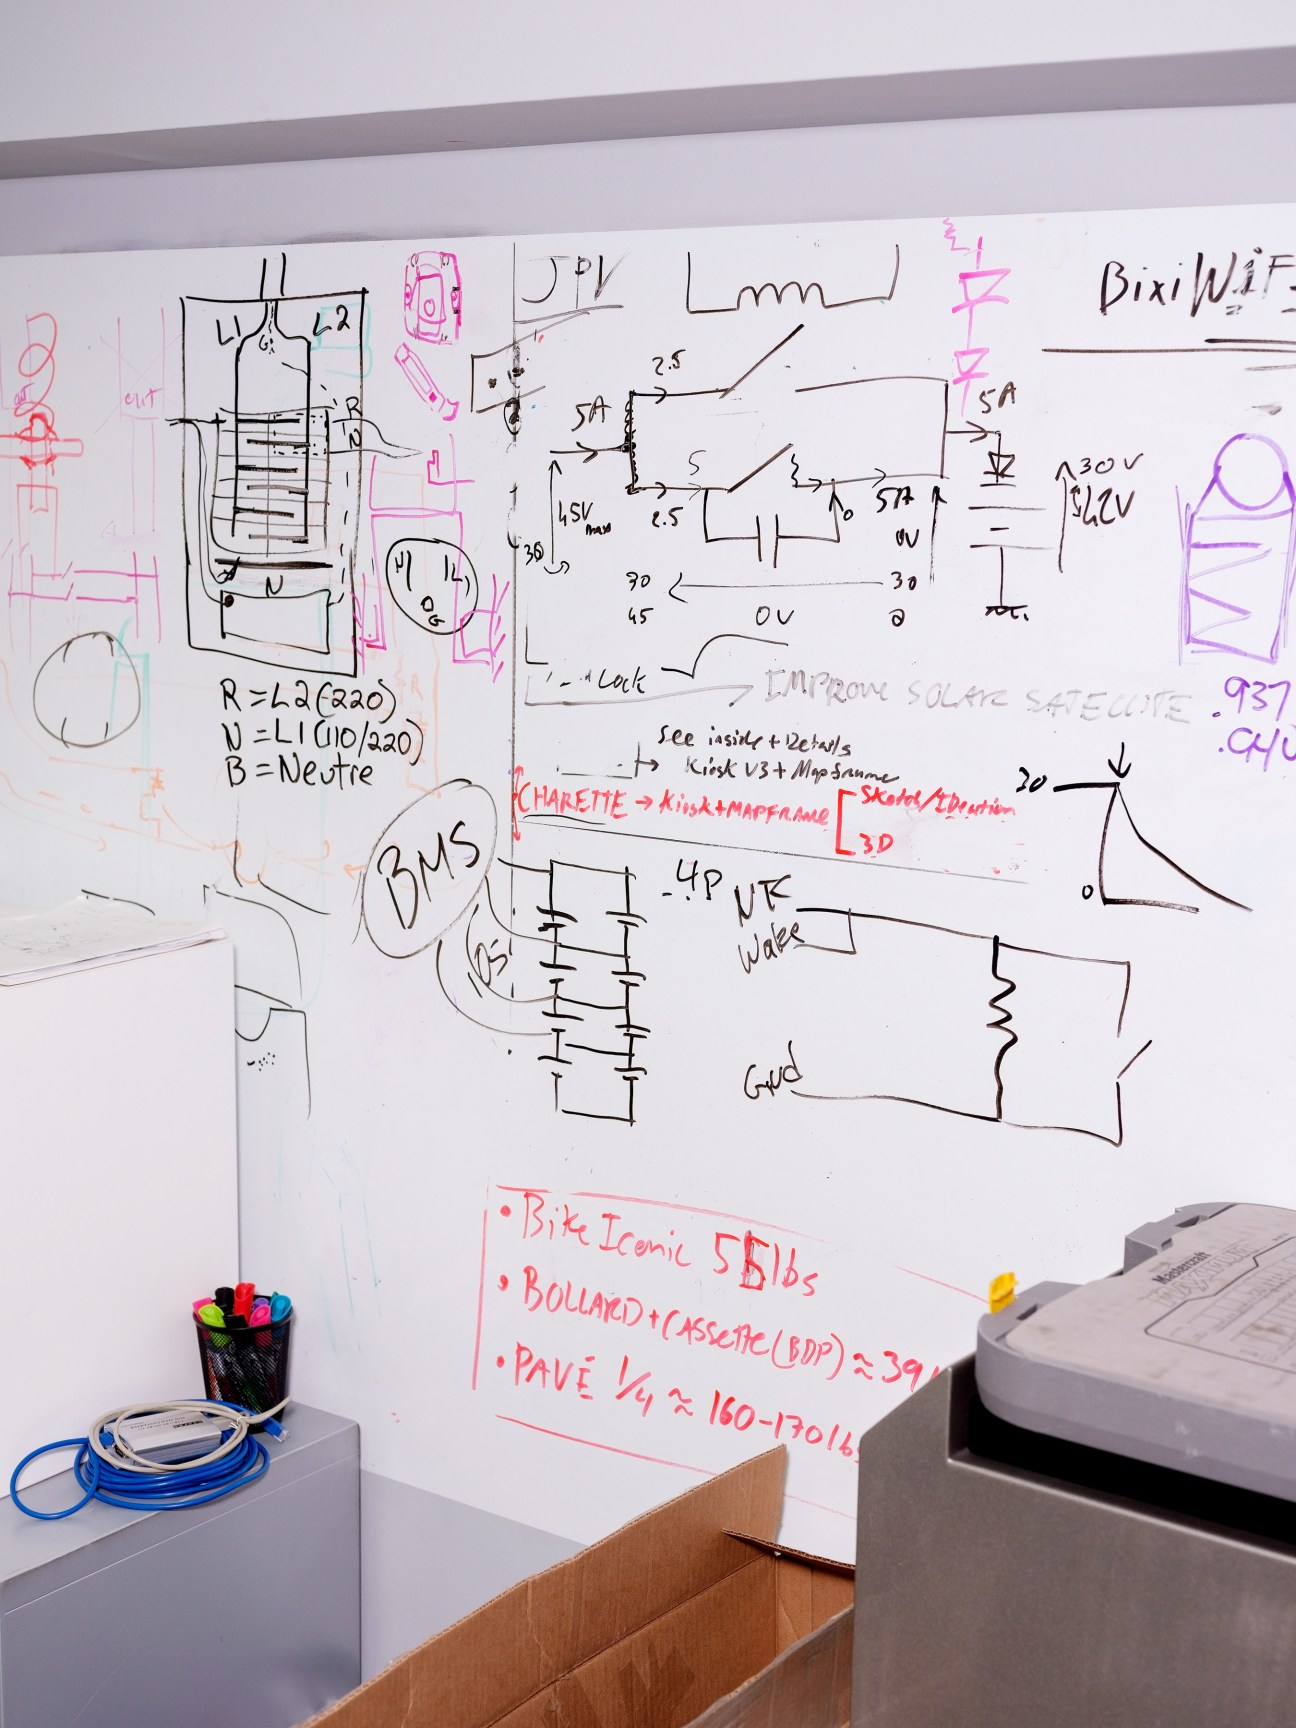 JPV
BixiWiF
L1
L2
G
R
N
N
R = L2 (-220)
N = L1 (110/220)
B = Neutre
out
G
2.5
5A
5A
S
2.5
45V max
30
5A
0
0V
30V
42V
30
0V
45
Lock
IMPROVE SOLAR SATELLITE
.937
See inside + Details
Kiosk V3 + Mapframe
CHARETTE → Kiosk + MAPFRAME
Sketch/Ideation
3D
30
0
BMS
10S
4P
Wake
Gnd
• Bike Iconic 55lbs
• BOLLARD + CASSETTE (BDP) ≈ 39
• PAVÉ 1/4 ≈ 160-170lbs
Mastercraft